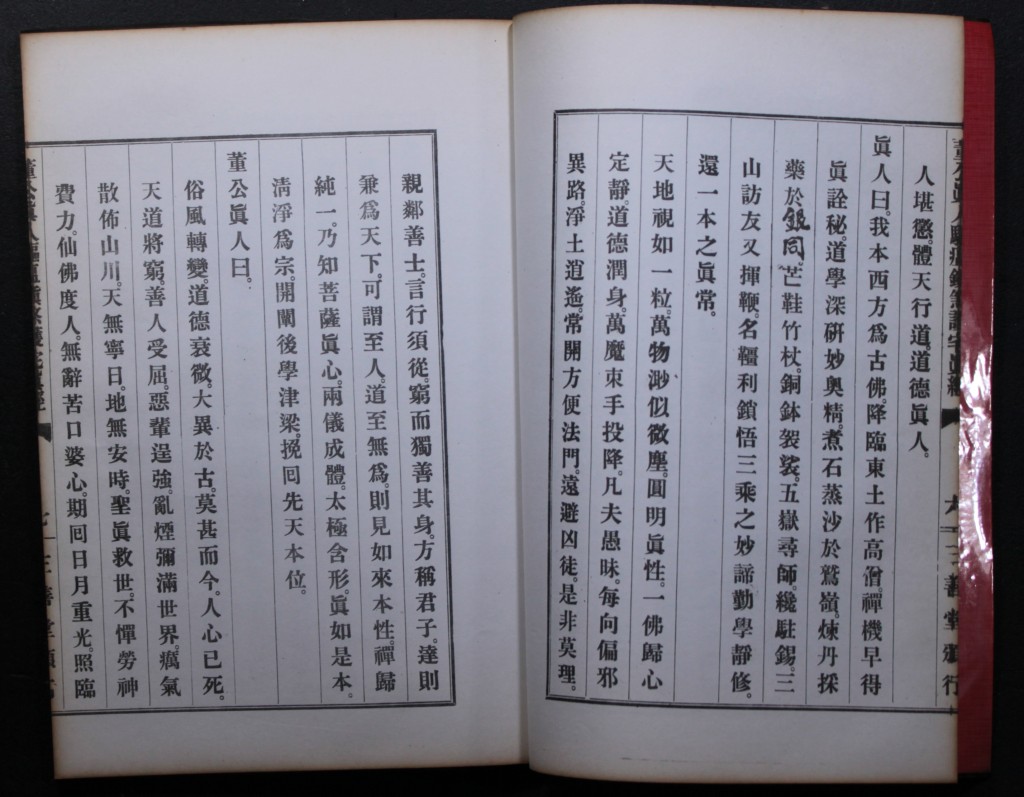 人堪慾。體天行道。道德眞人。
眞人曰。我本西方爲古佛。降臨東土作高僧。禪機早得
眞詮秘。道學深硏妙奧精。煮石蒸沙於鷲嶺。煉丹採
藥於銀同。芒鞋竹杖。銅鉢袈裟。五嶽尋師。纔駐錫。三
山訪友又揮鞭。名韁利鎖悟三乘之妙諦。勤學靜修。
還一本之眞常。
天地視如一粒。萬物渺似微塵。圓明眞性。一佛歸心
定靜。道德潤身。萬魔束手投降。凡夫愚昧。每向偏邪
異路。淨土逍遙。常開方便法門。遠避凶徒。是非莫理。
親鄰善士。言行須從。窮而獨善其身。方稱君子。達則
兼爲天下。可謂至人。道至無爲。則見如來本性。禪歸
純一。乃知菩薩眞心。兩儀成體。太極含形。眞如是本。
清淨爲宗。開闡後學津梁。挽囘先天本位。
董公眞人曰。
俗風轉變。道德衰微。大異於古。莫甚而今。人心已死。
天道將窮。善人受屈。惡輩逞強。亂煙彌滿世界。癘氣
散佈山川。天無寧日。地無安時。聖眞救世。不憚勞神
費力。仙佛度人。無辭苦口婆心。期囘日月重光。照臨